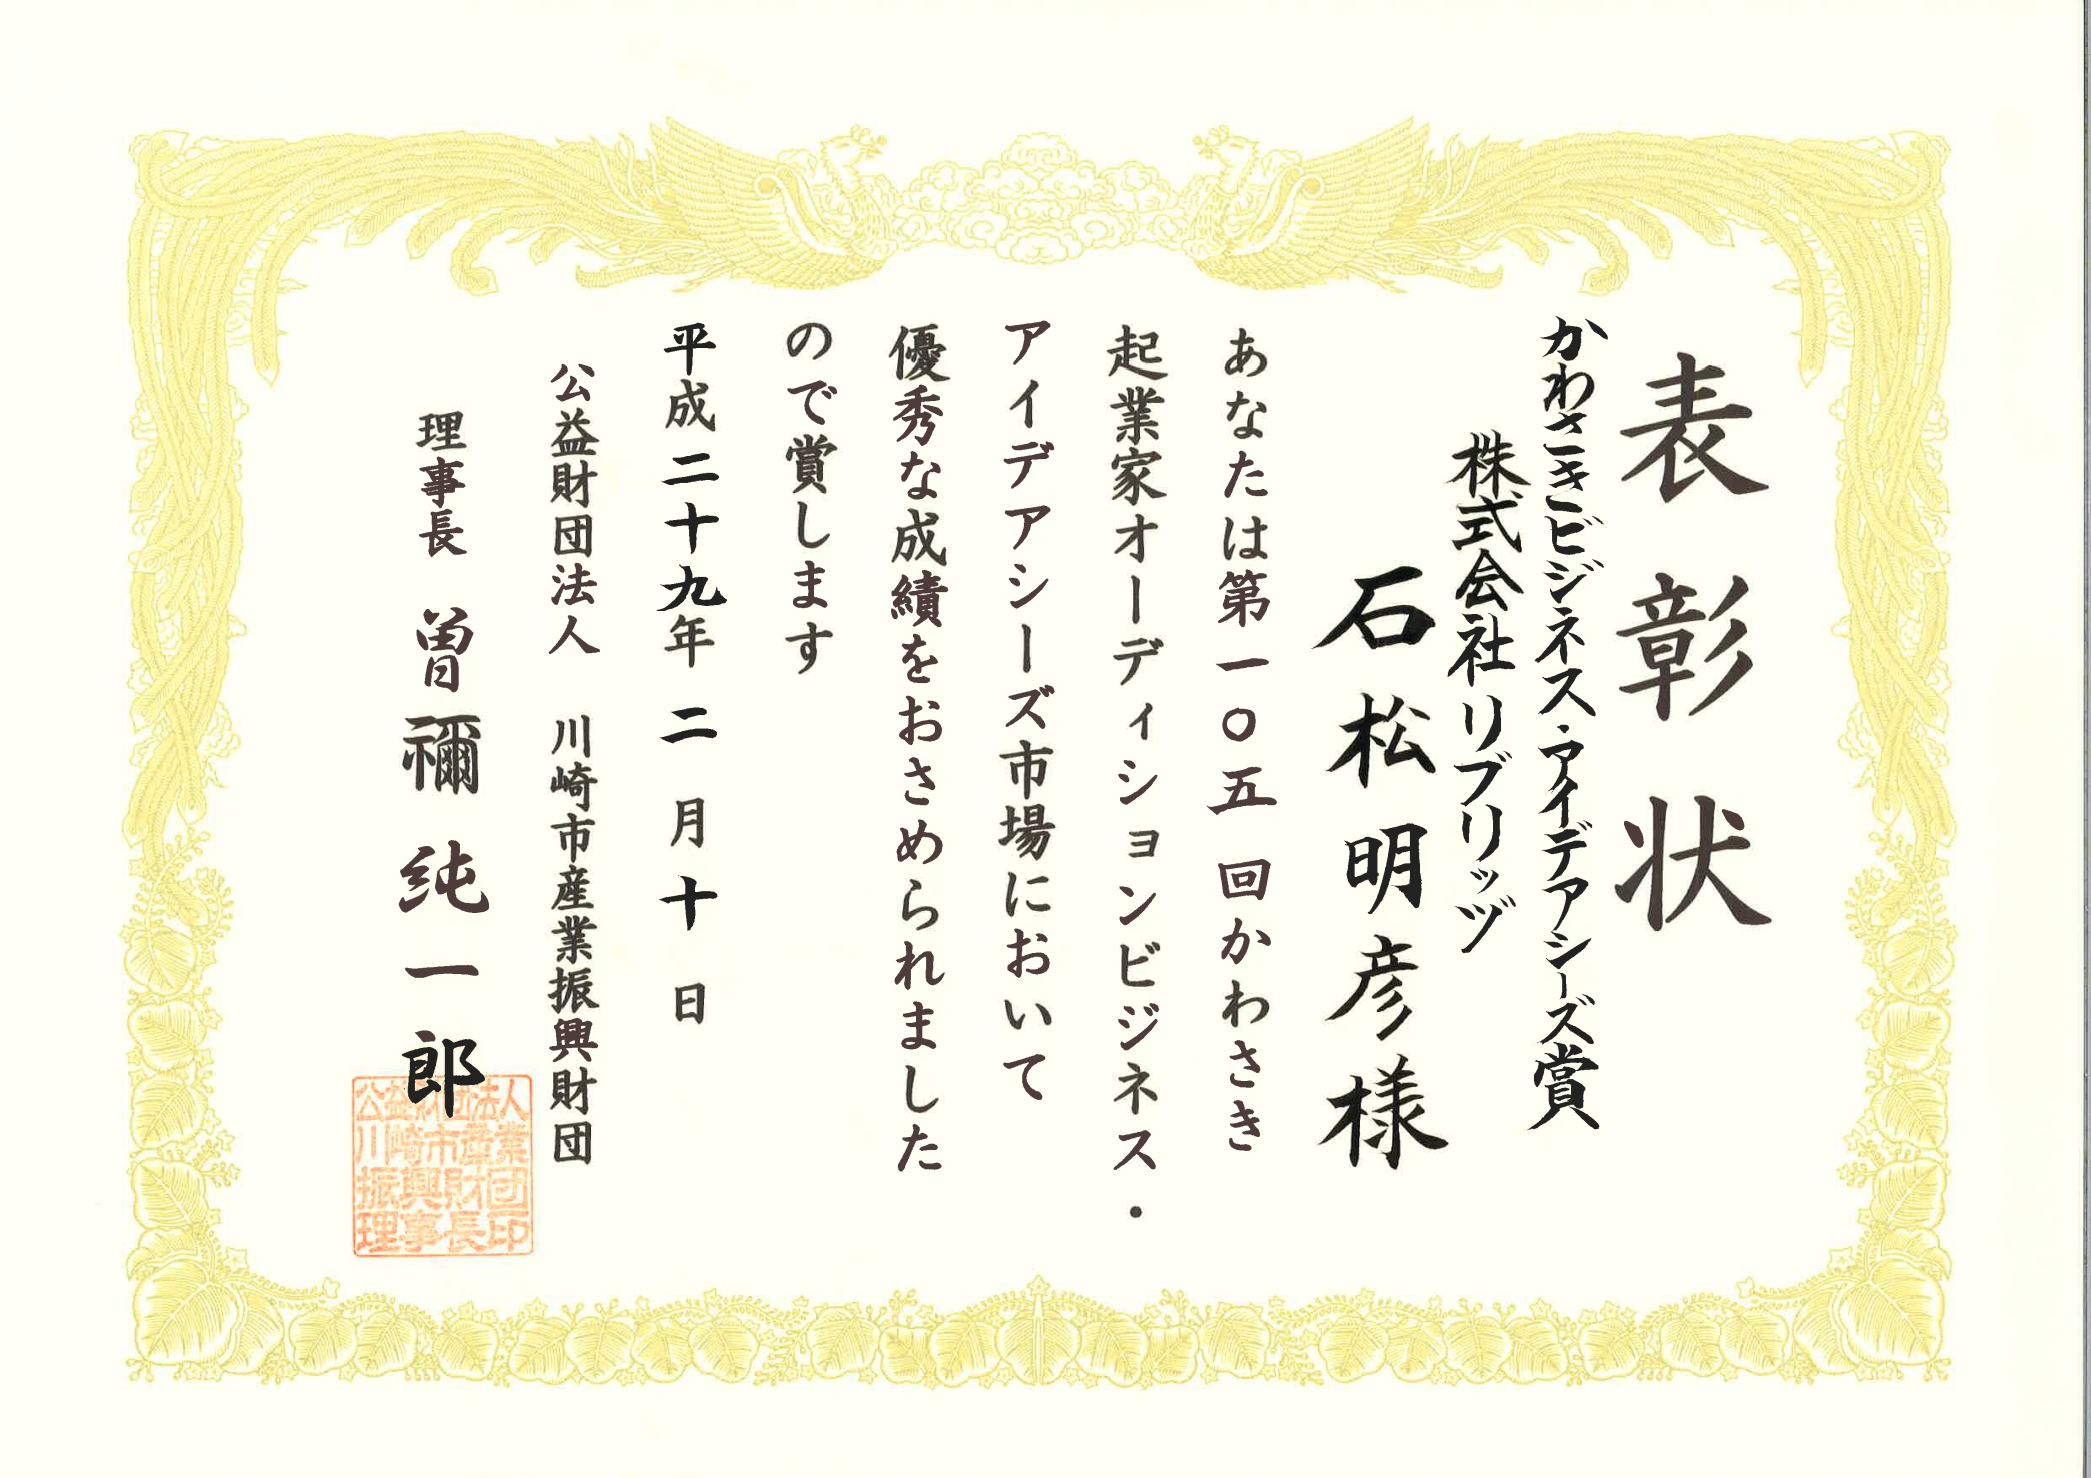 表彰状
かわさきビジネス・アイデアシーズ賞
株式会社リブリッヅ
石松明彦様
あなたは第一〇五回かわさき
起業家オーディションビジネス・
アイデアシーズ市場において
優秀な成績をおさめられました
ので賞します
平成二十九年二月十日
公益財団法人 川崎市産業振興財団
理事長 曽禰純一郎
公益財団法人
川崎市産業
振興財団
理事長印